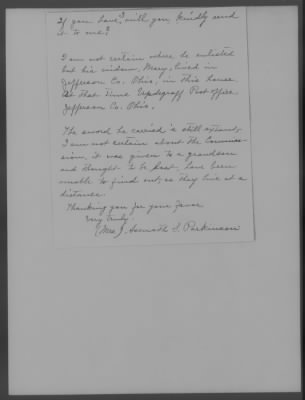 If you have, will you kindly send
it to me?
I am not certain where he enlisted
but his widow, Mary, lived in
Jefferson Co. Ohio, in this house
at that time Updegraff Post office,
Jefferson Co. Ohio.
The sword he carried is still extant,
I am not certain about the Commis-
sion, it was given to a grandson
and thought to be lost, have been
unable to find out, as they live at a
distance.
Thanking you for your favor
Very truly.
(Mrs.) S. Parkinson